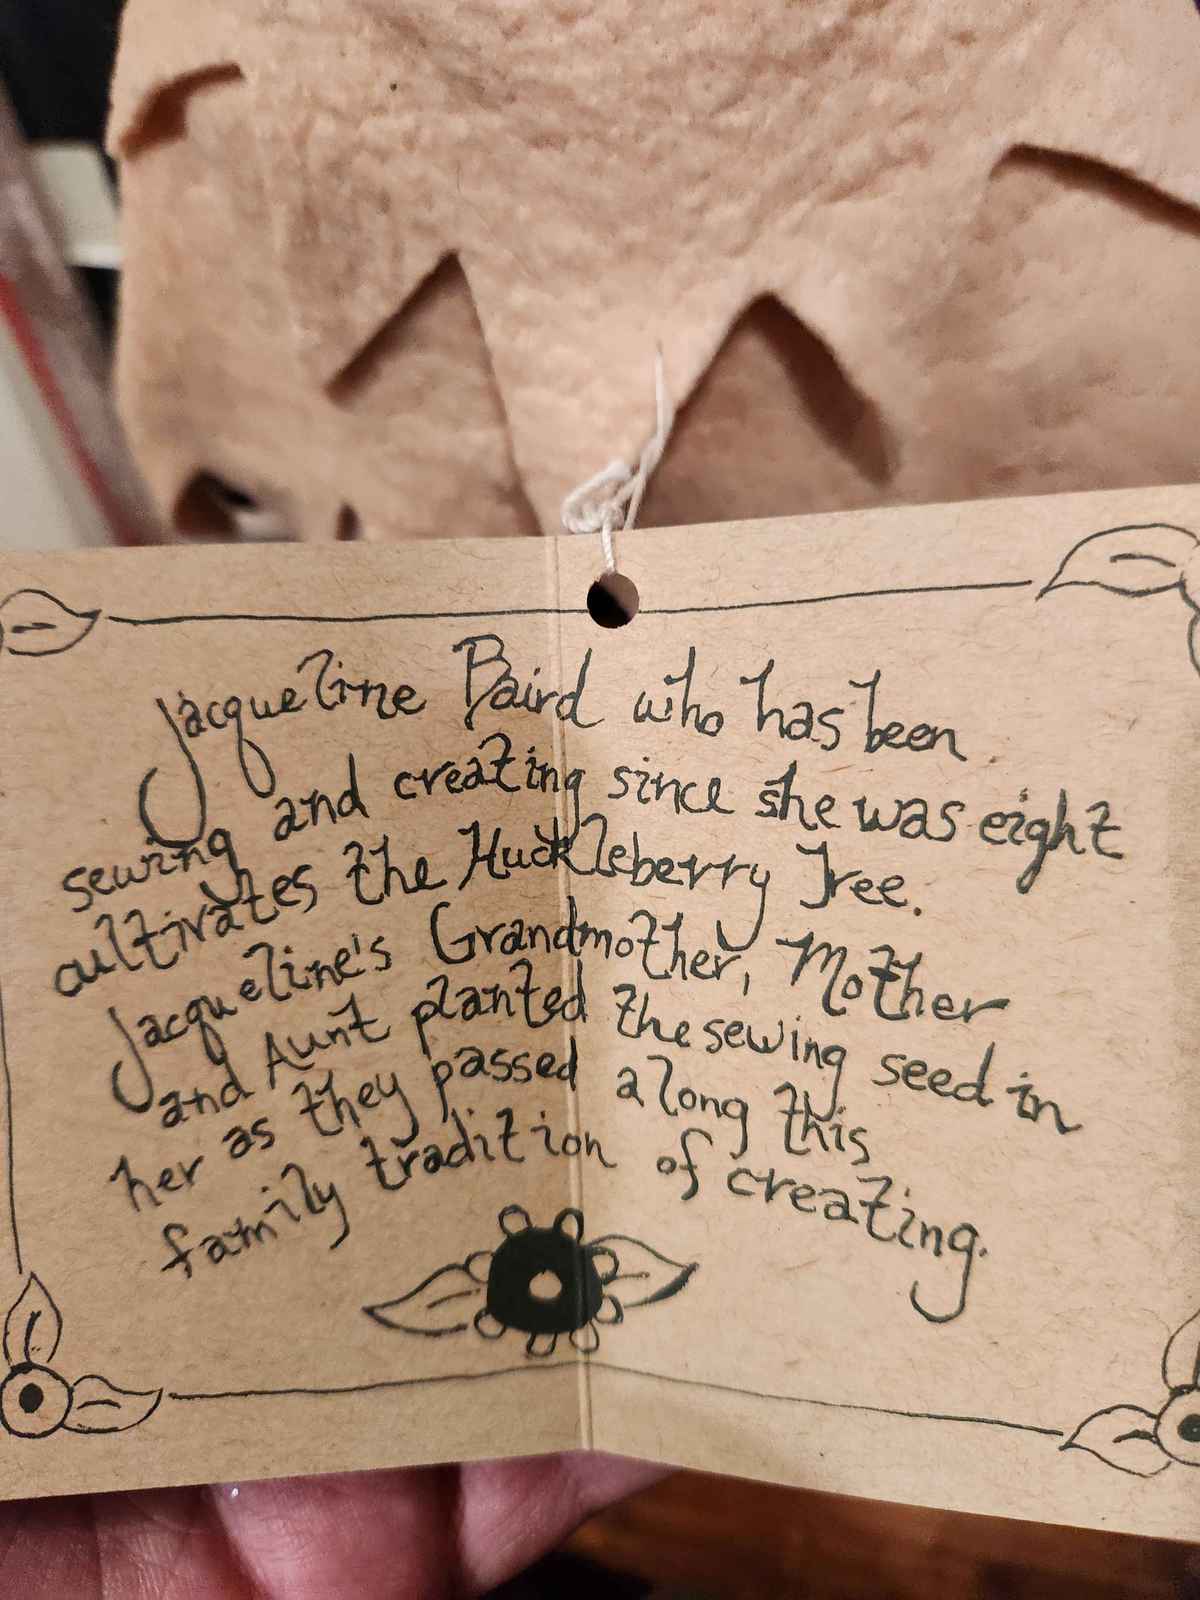 Jacqueline Baird who has been
sewing and creating since she was eight
cultivates the Huckleberry Tree.
Jacqueline's Grandmother, Mother
and Aunt planted the sewing seed in
her as they passed along this
family tradition of creating.